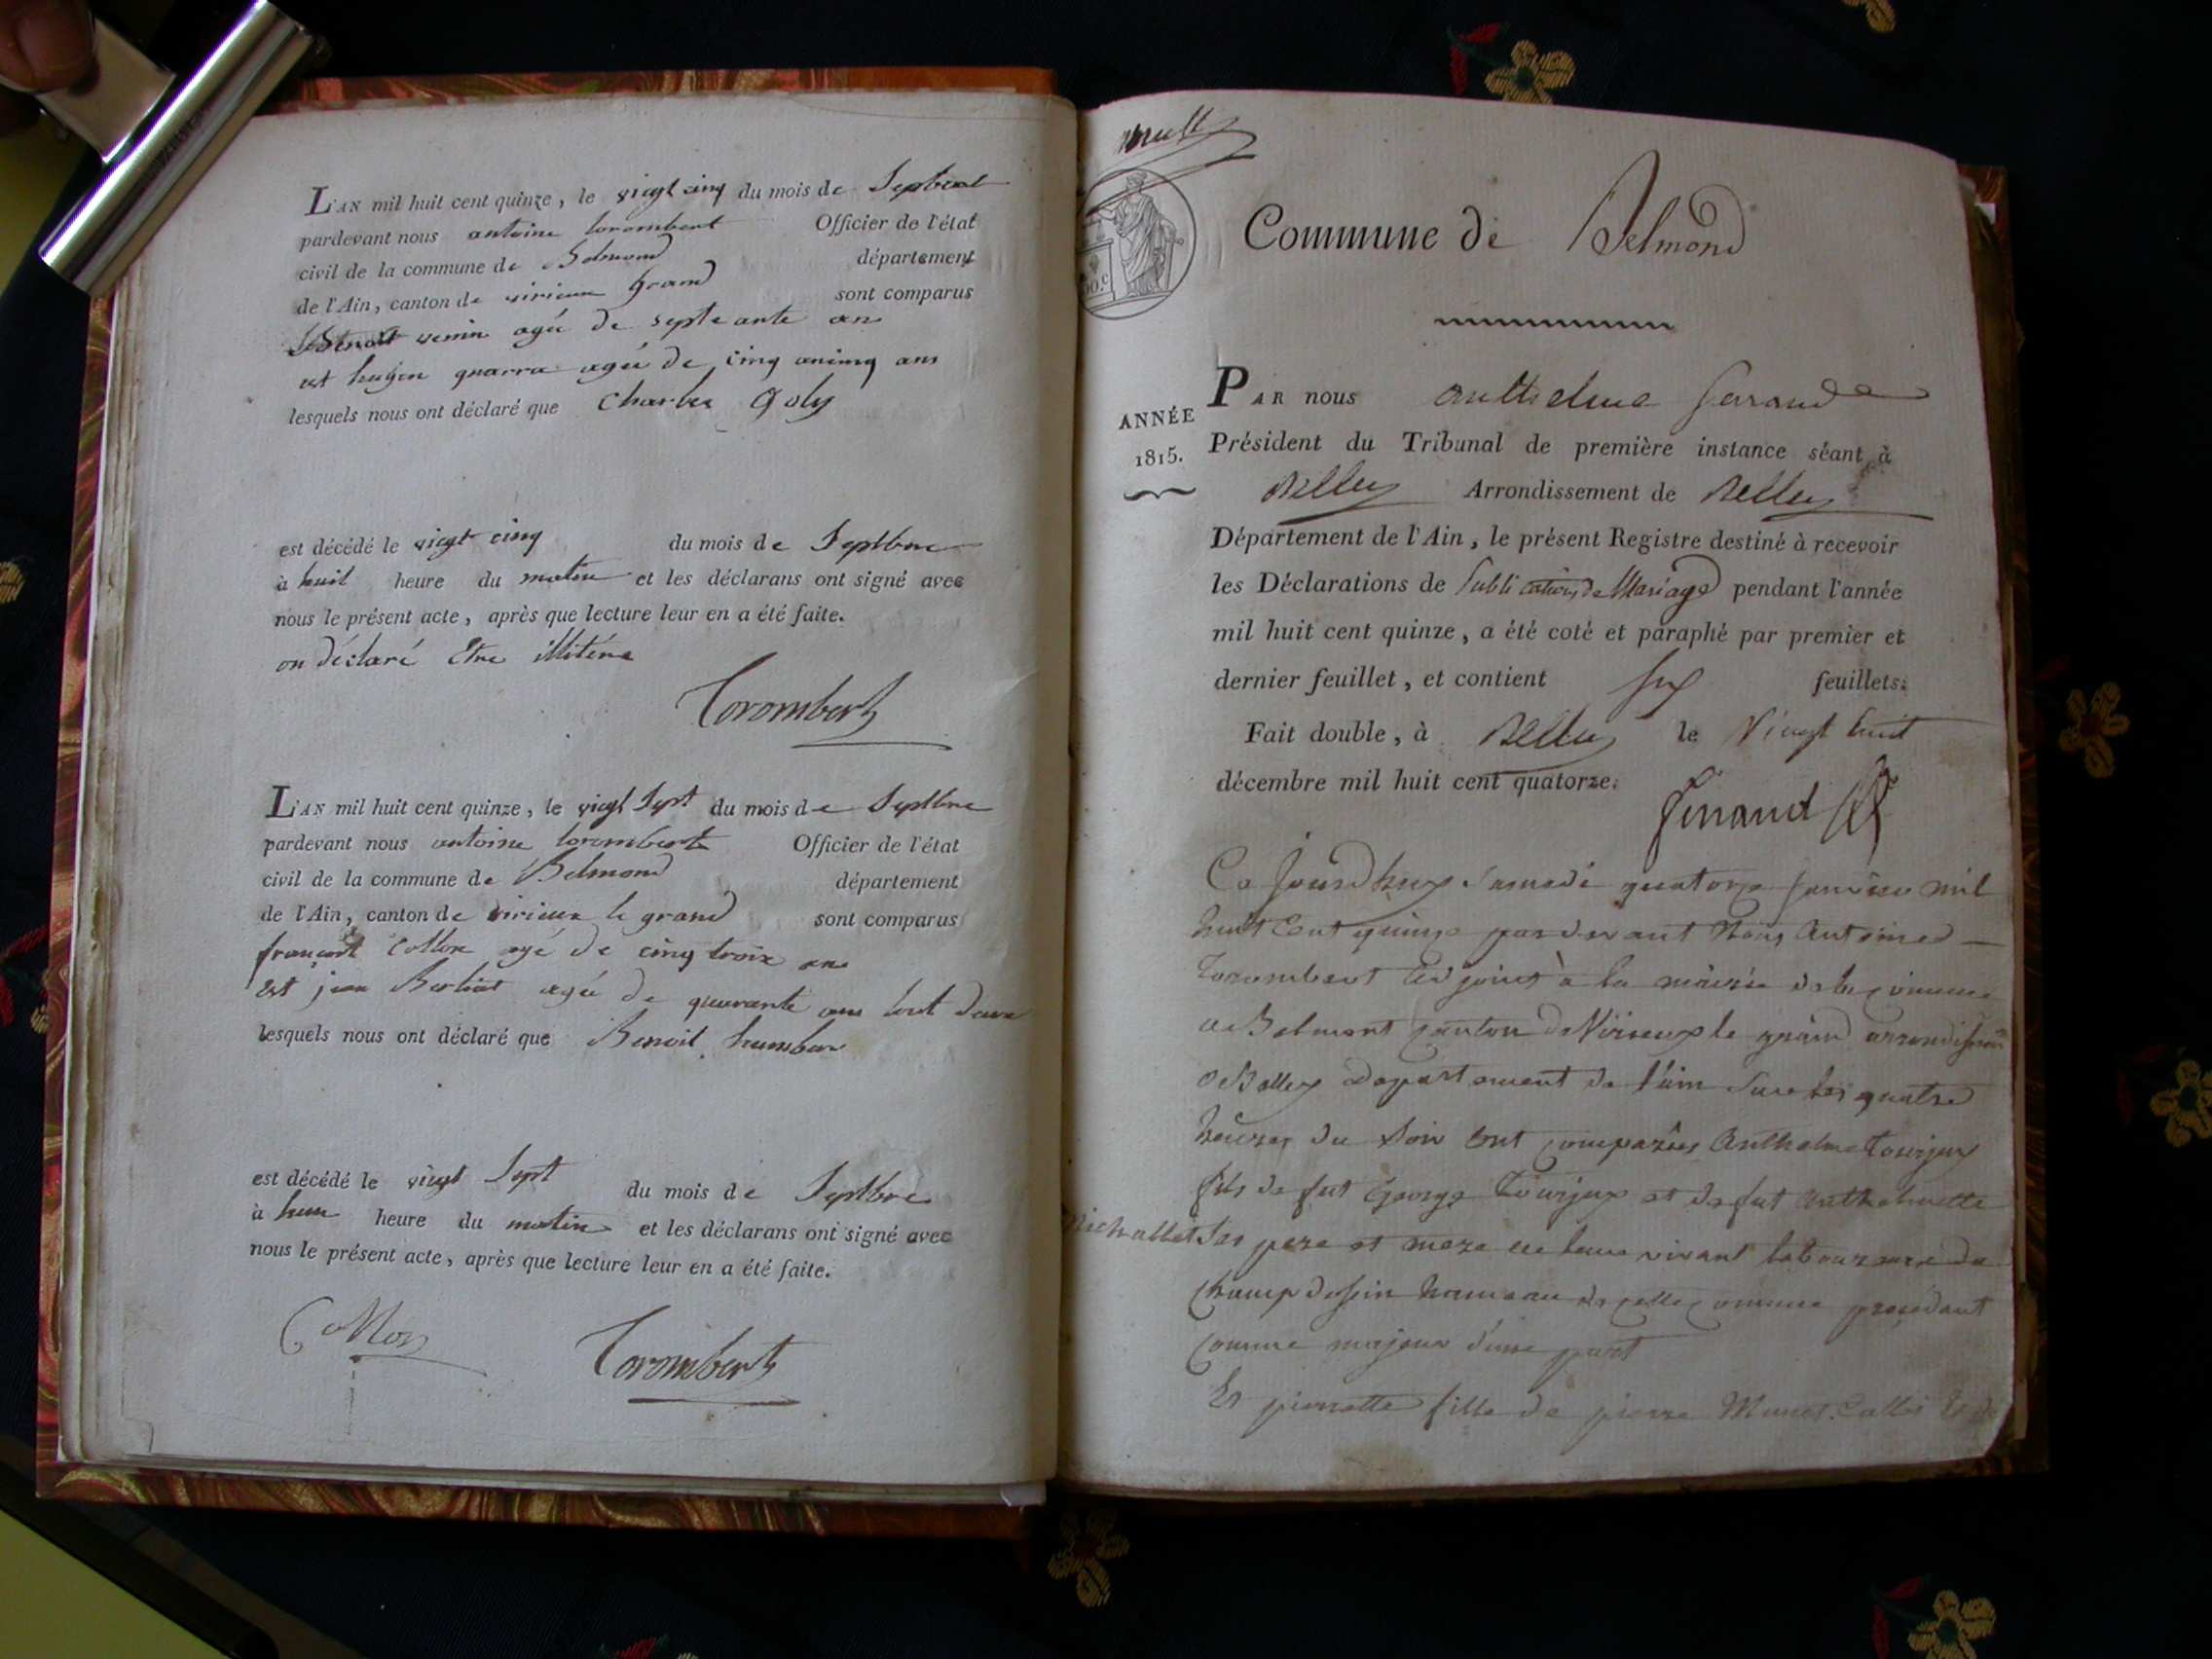 L'AN mil huit cent quinze, le vingt cinq du mois de Septbre
pardevant nous antoine torombert Officier de l'état
civil de la commune de Belmond département
de l'Ain, canton de virieux grand sont comparus
Benoit venin agée de septeante an
est hugon quarra agée de cinq ans
lesquels nous ont déclaré que Charles Goly
est décédé le vingt cinq du mois de Septbre
à huit heure du matin et les déclarans ont signé avec
nous le présent acte, après que lecture leur en a été faite.
on déclaré être illitéré
Torombert
L'AN mil huit cent quinze, le vingt Sept du mois de Septbre
pardevant nous antoine torombert Officier de l'état
civil de la commune de Belmond département
de l'Ain, canton de virieux le grand sont comparus
françois Collon agé de cinq trois an
est jean Berliot agée de quarante ans tout deux
lesquels nous ont déclaré que Benoit humber
est décédé le vingt Sept du mois de Septbre
à heure du matin et les déclarans ont signé avec
nous le présent acte, après que lecture leur en a été faite.
Collon Torombert
Commune de Belmond
PAR nous Anthelme Ferrand
ANNÉE
1815.
Président du Tribunal de première instance séant à
Belley Arrondissement de Belley
Département de l'Ain, le présent Registre destiné à recevoir
les Déclarations de Publications de Mariage pendant l'année
mil huit cent quinze, a été coté et paraphé par premier et
dernier feuillet, et contient six feuillets.
Fait double, à Belley le Vingt huit
décembre mil huit cent quatorze.
Ferrand
Ce Jourdhuy Samedi quatorze janvier mil
huit Cent quinze par devant Nous Antoine
Torombert adjoint à la mairie de la comune
de Belmont canton de Virieux le grand arrondissement
de Belley Departement de l'ain Sur les quatre
heures du Soir Ont comparûs Anthelme Tourjux
fils de fut George Tourjux et de fut Anthelmette
Michallet Ses pere et mere en leur vivant laboureur de
Champ dossin hameau de cette comune procédant
comme majeur d'une part
Et pierrette fille de pierre Munet